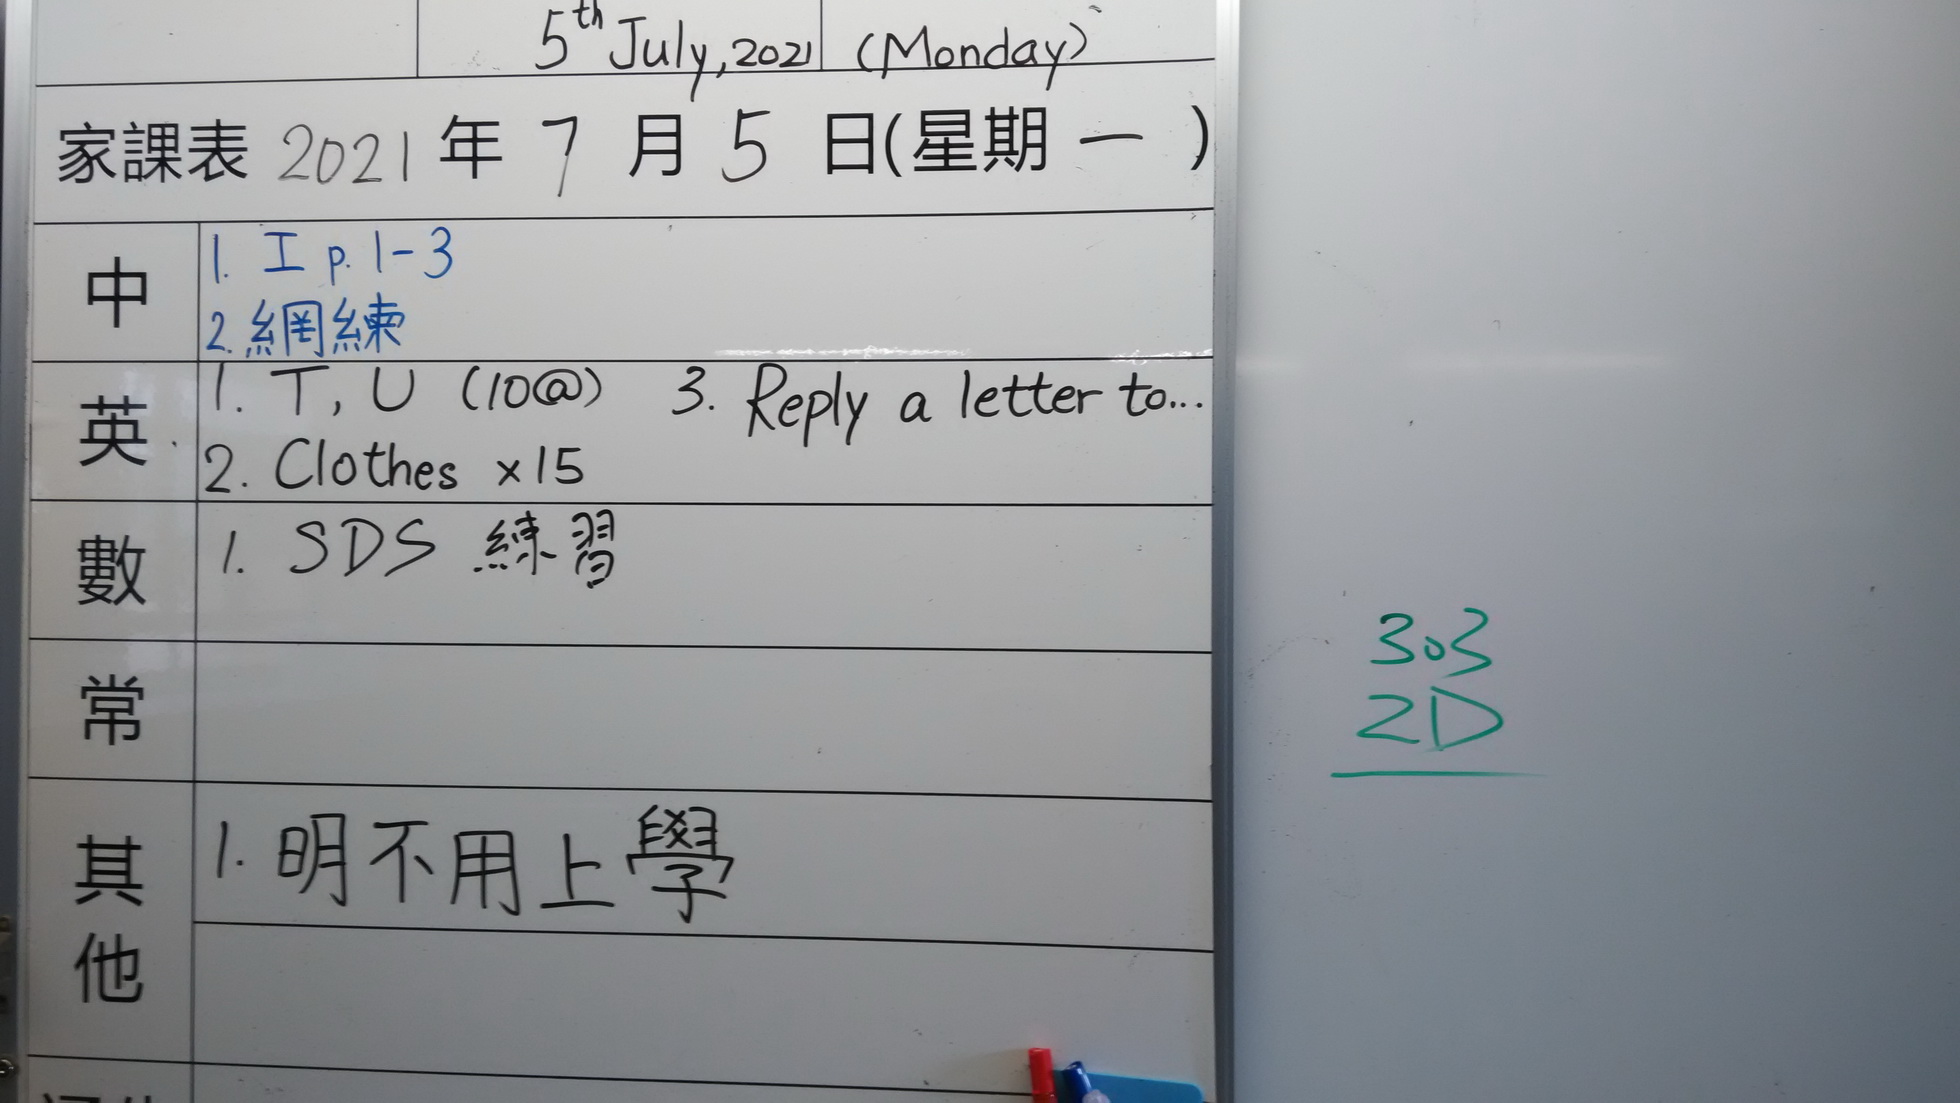 5th July, 2021 (Monday)
家課表 2021 年 7 月 5 日(星期 一 )
中
1. 工 p. 1-3
2. 網練
英
1. T, U (10@) 3. Reply a letter to...
2. Clothes x15
數
1. SDS 練習
常
其他
1. 明不用上學
303
2D